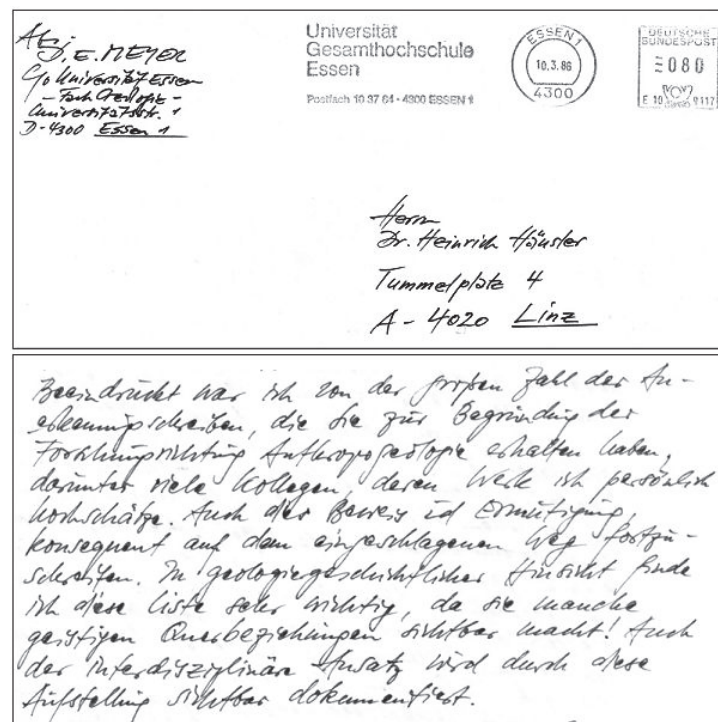 Abs.:
D. E. MEYER
c/o Universität Essen
- Fach Geologie -
Universitätsstr. 1
D-4300 Essen 1
Universität
Gesamthochschule
Essen
Postfach 10 37 64 · 4300 ESSEN 1
ESSEN 1
10.3.86
4300
DEUTSCHE
BUNDESPOST
080
E 10
Herrn
Dr. Heinrich Häusler
Tummelplatz 4
A - 4020 Linz
Beeindruckt war ich von der großen Zahl der An-
erkennungsschreiben, die Sie zur Begründung der
Forschungsrichtung Anthropogeologie erhalten haben,
darunter viele Kollegen, deren Werk ich persönlich
hochschätze. Auch der Beweis ist Ermutigung,
konsequent auf dem eingeschlagenen Weg fortzu-
schreiten. In geologiegeschichtlicher Hinsicht finde
ich diese Liste sehr wichtig, da sie manche
geistigen Querbeziehungen sichtbar macht! Auch
der interdisziplinäre Ansatz wird durch diese
Aufstellung sichtbar dokumentiert.